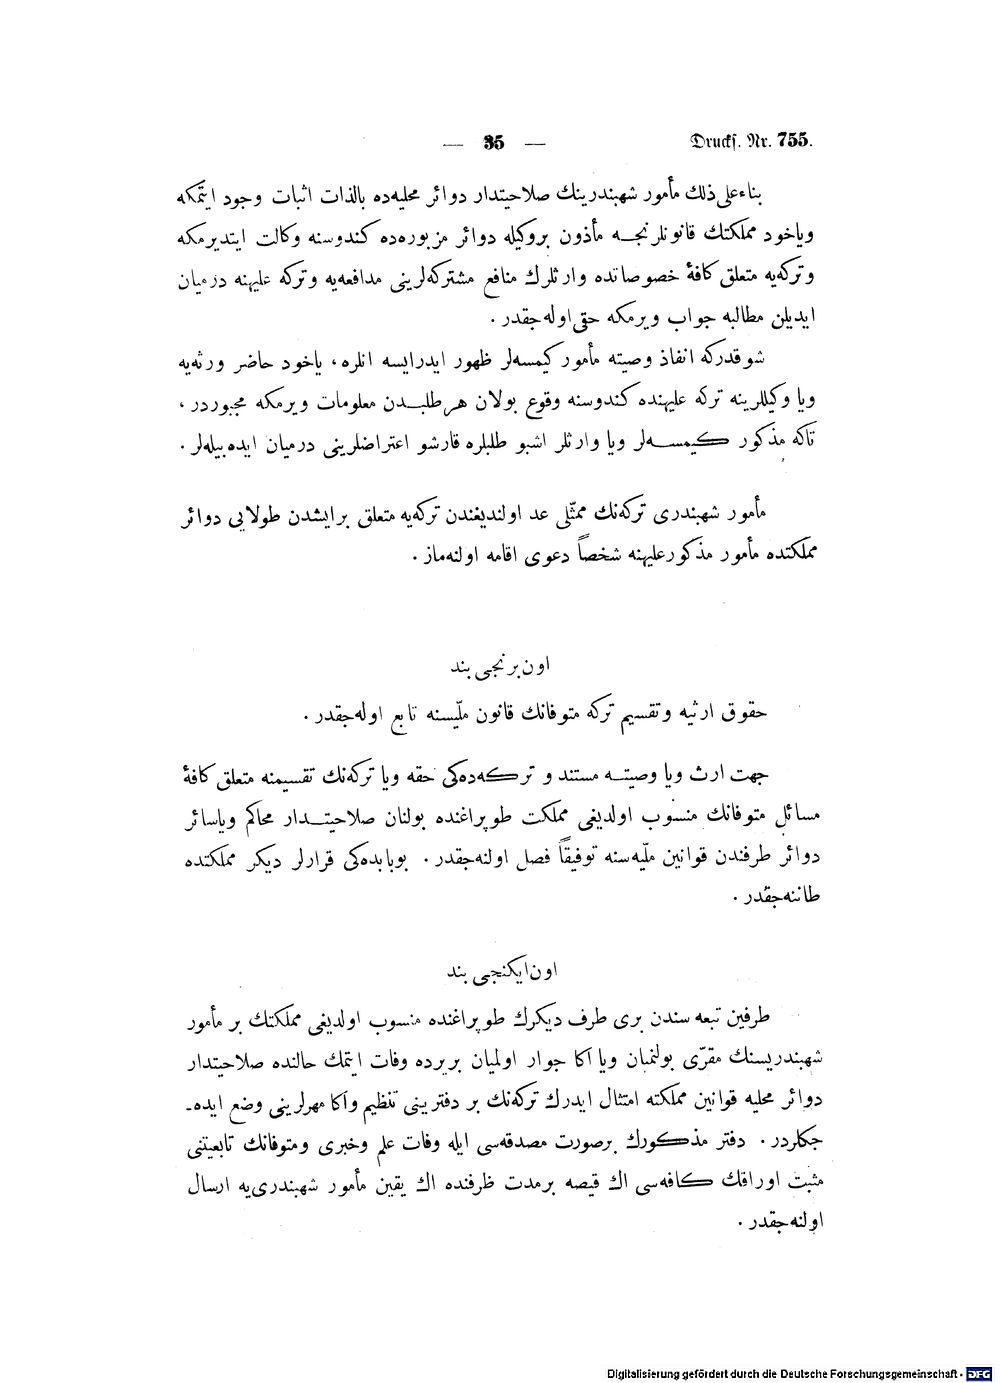 — 35 —
Drucks. Nr. 755.
بناءعلی ذلك مأمور شهبندرینك صلاحیتدار دوائر محلیه‌ده بالذات اثبات وجود ایتمكه
ویاخود مملكتك قانونلرنجـه مأذون بروكیله دوائر مزبوره‌ده كندوسنه وكالت ایتدیرمكه
وتركه‌یه متعلق كافهٔ خصوصاتده وارثلرك منافع مشتركه‌لرینی مدافعه‌یه وتركه علیهنه درمیان
ایدیلن مطالبه جواب ویرمكه حقی اوله‌جقدر .
شوقدركه انفاذ وصیته مأمور كیمسه‌لر ظهور ایدرایسه انلره، یاخود حاضر ورثه‌یه
ویا وكیللرینه تركه علیهنده كندوسنه وقوع بولان هرطلبـدن معلومات ویرمكه مجبوردر ،
تاكه مذكور كیمسـه‌لر ویا وارثلر اشبو طلبلره قارشو اعتراضلرینی درمیان ایده‌بیله‌لر .
مأمور شهبندری تركه‌نك ممثّلی عد اولندیغندن تركه‌یه متعلق برایشدن طولایی دوائر
مملكتده مأمور مذكورعلیهنه شخصاً دعوی اقامه اولنه‌ماز .
اون‌برنجی بند
حقوق ارثیه وتقسیم تركه متوفانك قانون ملّیسنه تابع اوله‌جقدر .
جهت ارث ویا وصیتـه مستند و تركـه‌ده‌كی حقه ویا تركه‌نك تقسیمنه متعلق كافهٔ
مسائل متوفانك منسوب اولدیغی مملكت طوپراغنده بولنان صلاحیتـدار محاكم ویاسائر
دوائر طرفندن قوانین ملّیه‌سنه توفیقاً فصل اولنه‌جقدر . بوبابده‌كی قرارلر دیكر مملكتده
طاننه‌جقدر .
اون‌ایكنجی بند
طرفین تبعه سندن بری طرف دیكرك طوپراغنده منسوب اولدیغی مملكتك بر مأمور
شهبندریسنك مقرّی بولنمیان ویا اكا جوار اولمیان بریرده وفات ایتمك حالنده صلاحیتدار
دوائر محلیه قوانین مملكته امتثال ایدرك تركه‌نك بر دفترینی تنظیم واكا مهرلرینی وضع ایده-
جكلردر . دفتر مذكورك برصورت مصدقه‌سی ایله وفات علم وخبری ومتوفانك تابعیتنی
مثبت اوراقك كافه‌سی اك قیصه برمدت ظرفنده اك یقین مأمور شهبندری‌یه ارسال
اولنه‌جقدر .
Digitalisierung gefördert durch die Deutsche Forschungsgemeinschaft - DFG